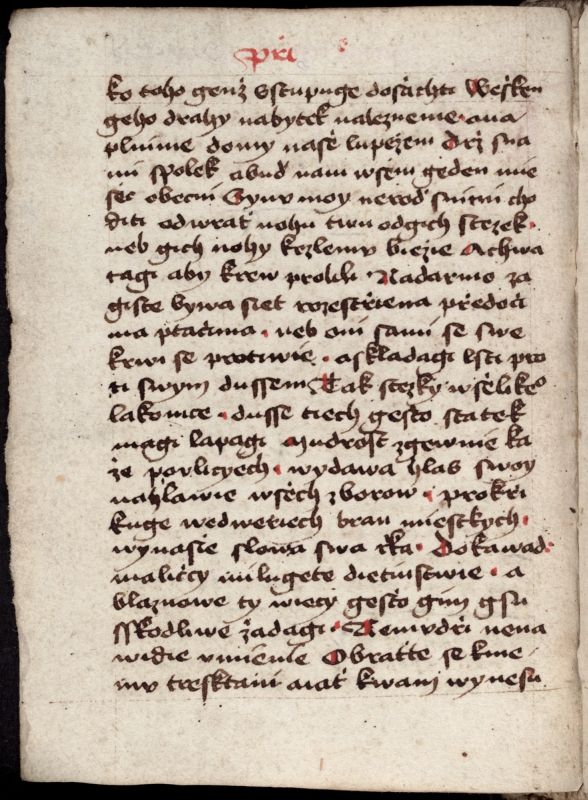 při
ko toho genż sstupuge dosachti Weßken
geho drahy nabytek nalezneme · a na
plnime domy nasě lupežem Drž sna
mi spolek a bud nam wsem geden mie
sec obecni Synu moy nerod snimi cho
diti odwrat nohu twu odgich stezek ·
neb gich nohy kezlemu biezie Achwa
tagi aby krew prolili Nadarmo za
giste bywa siet rozestřiena předoči
ma ptačima · neb oni sami se swe
krwi se protiwie · a skladagi lsti pro
ti swym dussem Tak stezky wšelikeo
lakomce · dusse tiech gešto statek
magi lapagi Mudrost zgewnie ka
že po vliczech · wydawa hlas swoy
nahlawie wsech zborow · prokři
kuge wedweriech bran miestkych ·
wynasie slowa swa rka · Dokawad ·
maličcy milugete dietinstwie · a
blaznowe ty wiecy gešto gim gsu
sskodliwe žadagi · Nemudři nena
widie vmienie Obratte se kme
mu tresktani aiat kwam wynesu